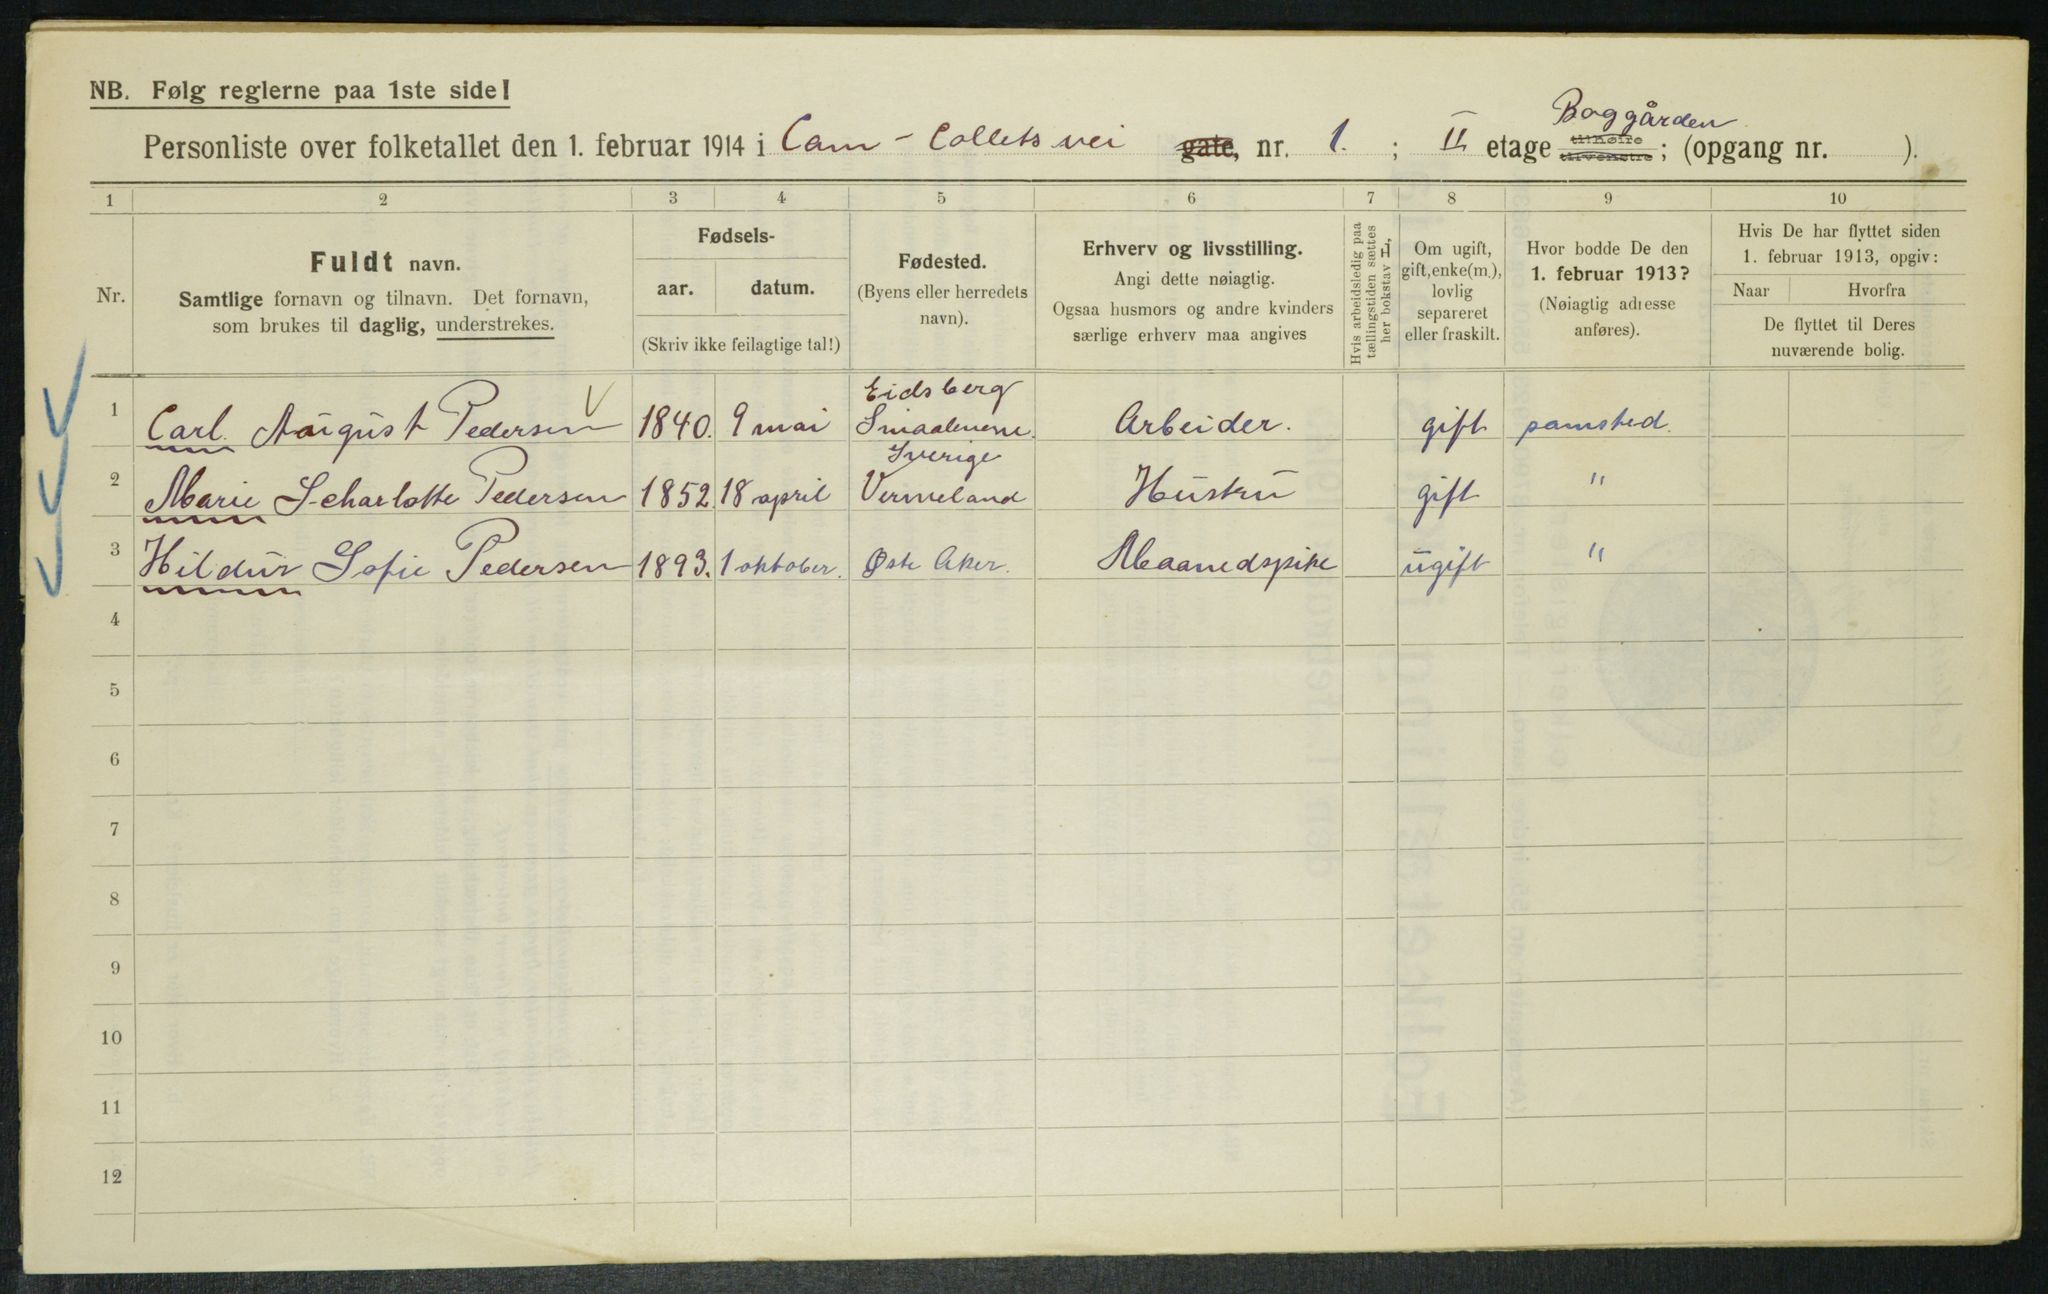 NB. Følg reglerne paa 1ste side!
Personliste over folketallet den 1. februar 1914 i Cam - Collets vei gate, nr. 1. ; II etage Baggården tilhøire tilvenstre ; (opgang nr. ).
1 2 3 4 5 6 7 8 9 10
Nr.
Fuldt navn.
Samtlige fornavn og tilnavn. Det fornavn,
som brukes til daglig, understrekes.
Fødsels-
aar. datum.
(Skriv ikke feilagtige tal!)
Fødested.
(Byens eller herredets
navn).
Erhverv og livsstilling.
Angi dette nøiagtig.
Ogsaa husmors og andre kvinders
særlige erhverv maa angives
Hvis arbeidsledig paa
tællingstiden sættes
her bokstav L,
Om ugift,
gift, enke(m.),
lovlig
separeret
eller fraskilt.
Hvor bodde De den
1. februar 1913?
(Nøiagtig adresse
anføres).
Hvis De har flyttet siden
1. februar 1913, opgiv:
Naar Hvorfra
De flyttet til Deres
nuværende bolig.
1 Carl. August Pedersen 1840. 9 mai Eidsberg Smaalenene. Arbeider. gift samsted.
2 Marie Scharlotte Pedersen 1852. 18 april Sverige Vermeland Hustru gift "
3 Hildur Sofie Pedersen 1893. 1 oktober. Øste Aker. Maanedspike ugift "
4
5
6
7
8
9
10
11
12